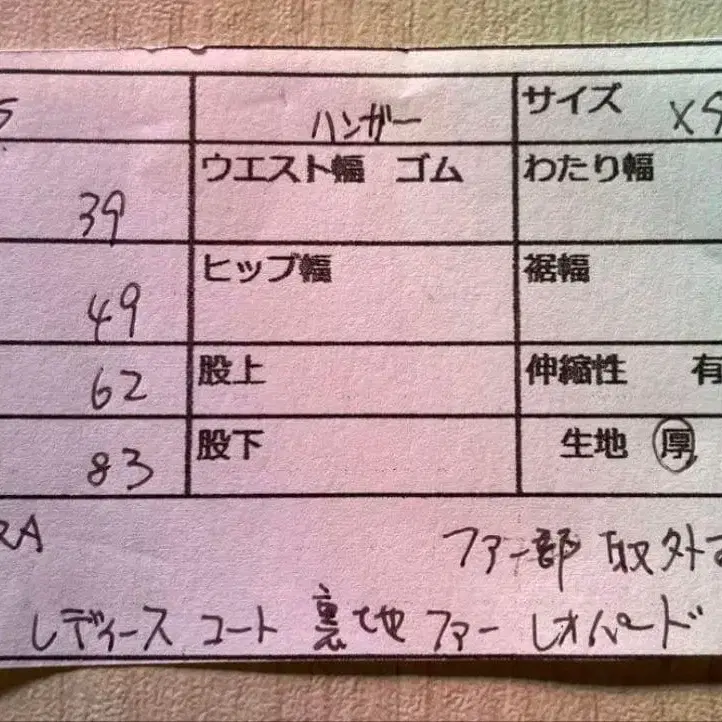 S ハンガー サイズ XS
39 ウエスト幅 ゴム わたり幅
49 ヒップ幅 裾幅
62 股上 伸縮性 有
83 股下 生地 厚,
RA ファー部 取外
レディース コート 裏地 ファー レオパード